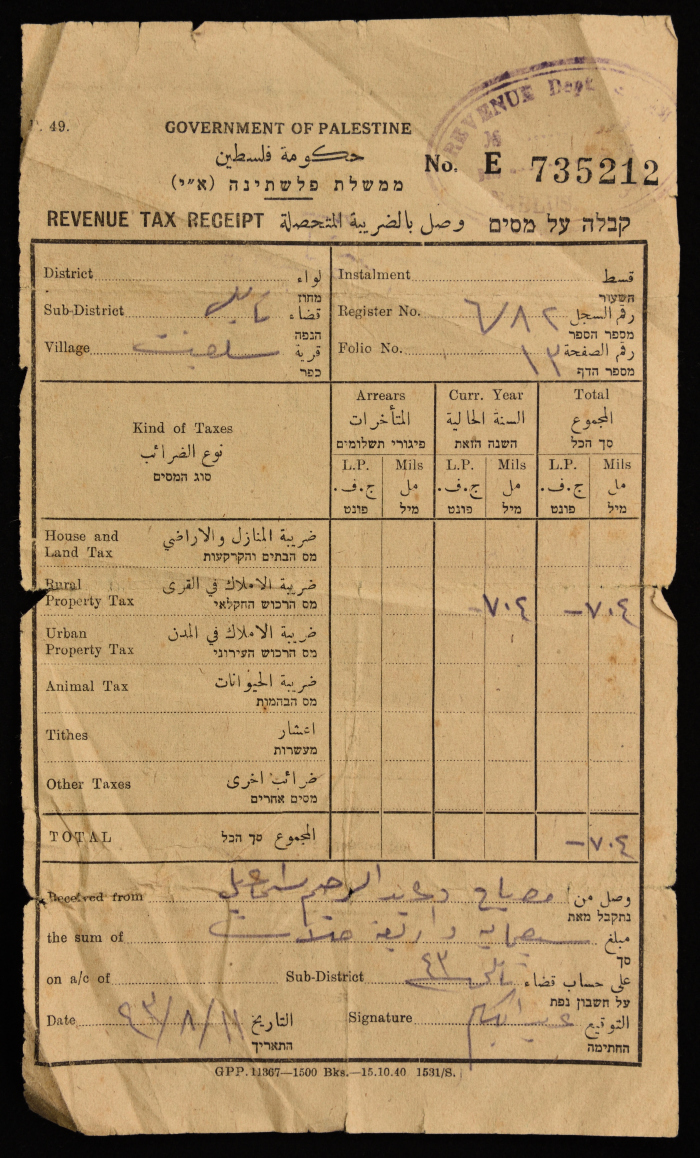 REVENUE Dept
P. 49.
GOVERNMENT OF PALESTINE
حكومة فلسطين
ממשלת פלשתינה (א״י)
No. E 735212
REVENUE TAX RECEIPT وصل بالضريبة المتحصلة קבלה על מסים
District لواء
מחוז
Sub-District نابلس قضاء
הנפה
Village سلفيت قرية
כפר
Instalment قسط
השעור
Register No. ٦/٨٢ رقم السجل
מספר הספר
Folio No. ١٣ رقم الصفحة
מספר הדף
Kind of Taxes
نوع الضرائب
סוג המסים
Arrears Curr. Year Total
المتأخرات السنة الحالية المجموع
פיגורי תשלומים השנה הזאת סך הכל
L.P. Mils L.P. Mils L.P. Mils
ج.ف. مل ج.ف. مل ج.ف. مل
פונט מיל פונט מיל פונט מיל
House and ضريبة المنازل والاراضي
Land Tax מס הבתים והקרקעות
Rural ضريبة الاملاك في القرى
Property Tax מס הרכוש החקלאי -٧٠٤ -٧٠٤
Urban ضريبة الاملاك في المدن
Property Tax מס הרכוש העירוני
Animal Tax ضريبة الحيوانات
מס הבהמות
Tithes اعشار
מעשרות
Other Taxes ضرائب اخرى
מסים אחרים
TOTAL المجموع סך הכל -٧٠٤
Received from عبد الرحيم وصل من
נתקבל מאת
the sum of سبعماية واربعة مبلغ
סך
on a/c of Sub-District نابلس ٤٣ على حساب قضاء
על חשבון נפת
Date ٩٣/٨/١١ التاريخ Signature التوقيع
התאריך החתימה
GPP. 11367—1500 Bks.—15.10.40 1531/S.